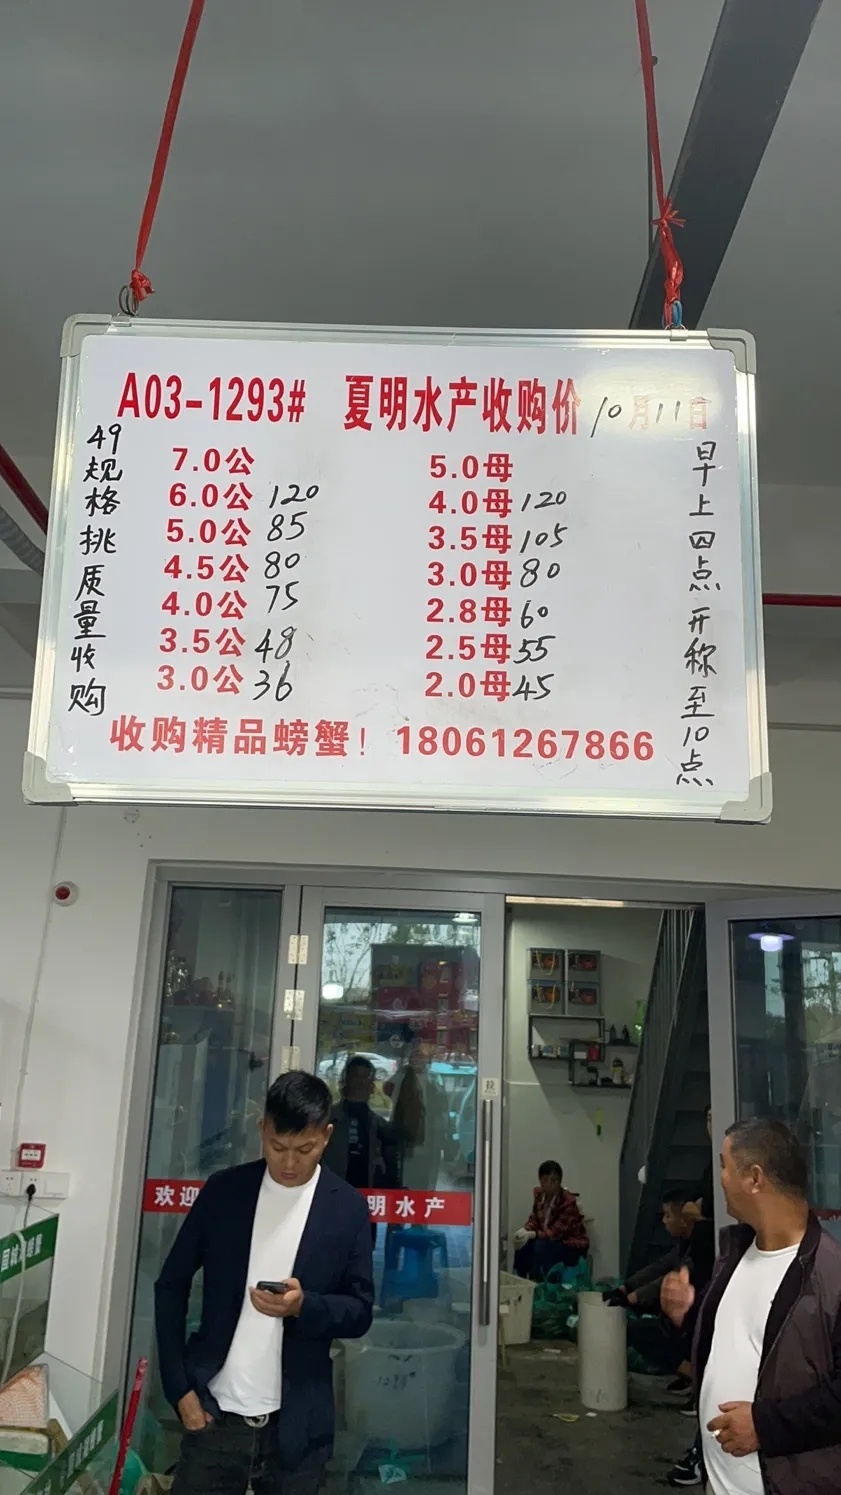 A03-1293# 夏明水产收购价 10月11日
49规格挑质量收购
7.0公
6.0公 120
5.0公 85
4.5公 80
4.0公 75
3.5公 48
3.0公 36
5.0母
4.0母 120
3.5母 105
3.0母 80
2.8母 60
2.5母 55
2.0母 45
早上四点开称至10点
收购精品螃蟹！18061267866
欢迎
明水产
拉